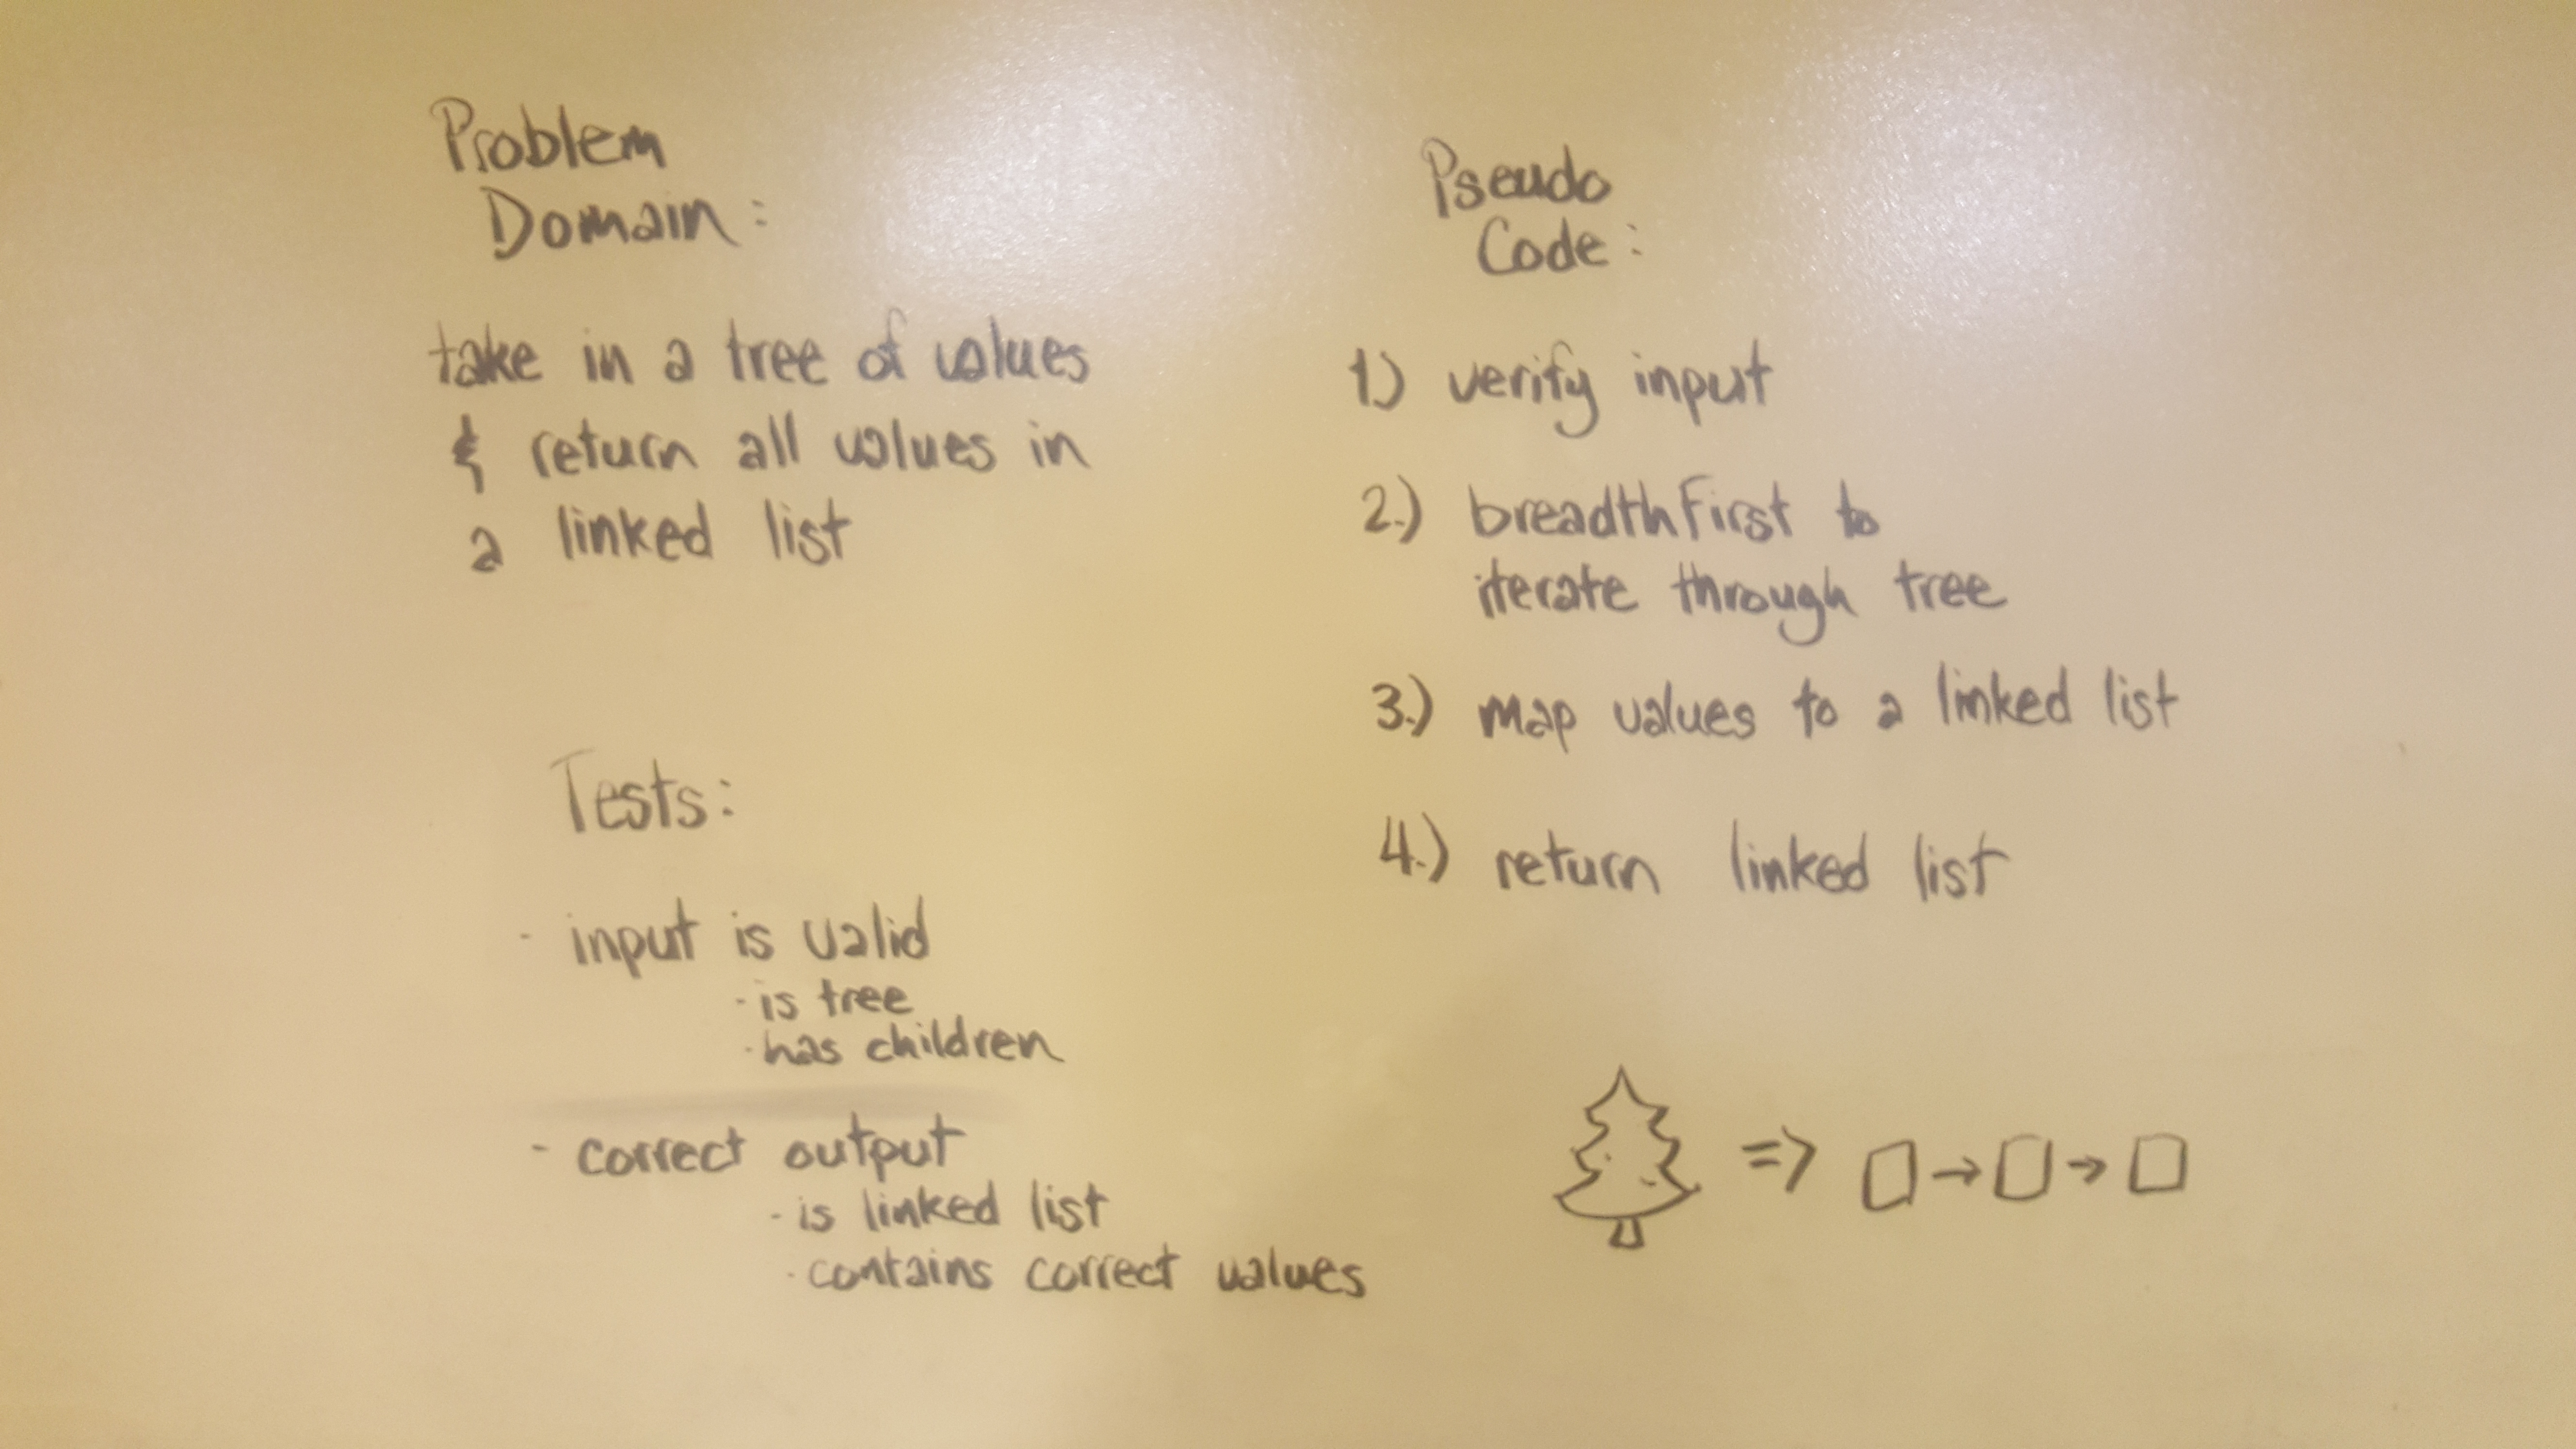 Problem
Domain:
take in a tree of values
& return all values in
a linked list
Tests:
- input is valid
- is tree
- has children
- correct output
- is linked list
- contains correct values
Pseudo
Code:
1.) verify input
2.) breadthFirst to
iterate through tree
3.) map values to a linked list
4.) return linked list
=> → →